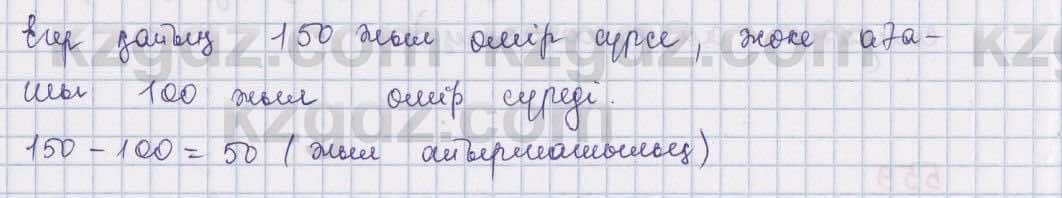 Егер қайың 150 жыл өмір сүрсе, жөке аға-
шы 100 жыл өмір сүреді.
150 - 100 = 50 (жыл айырмашылық)
kzgdz.com